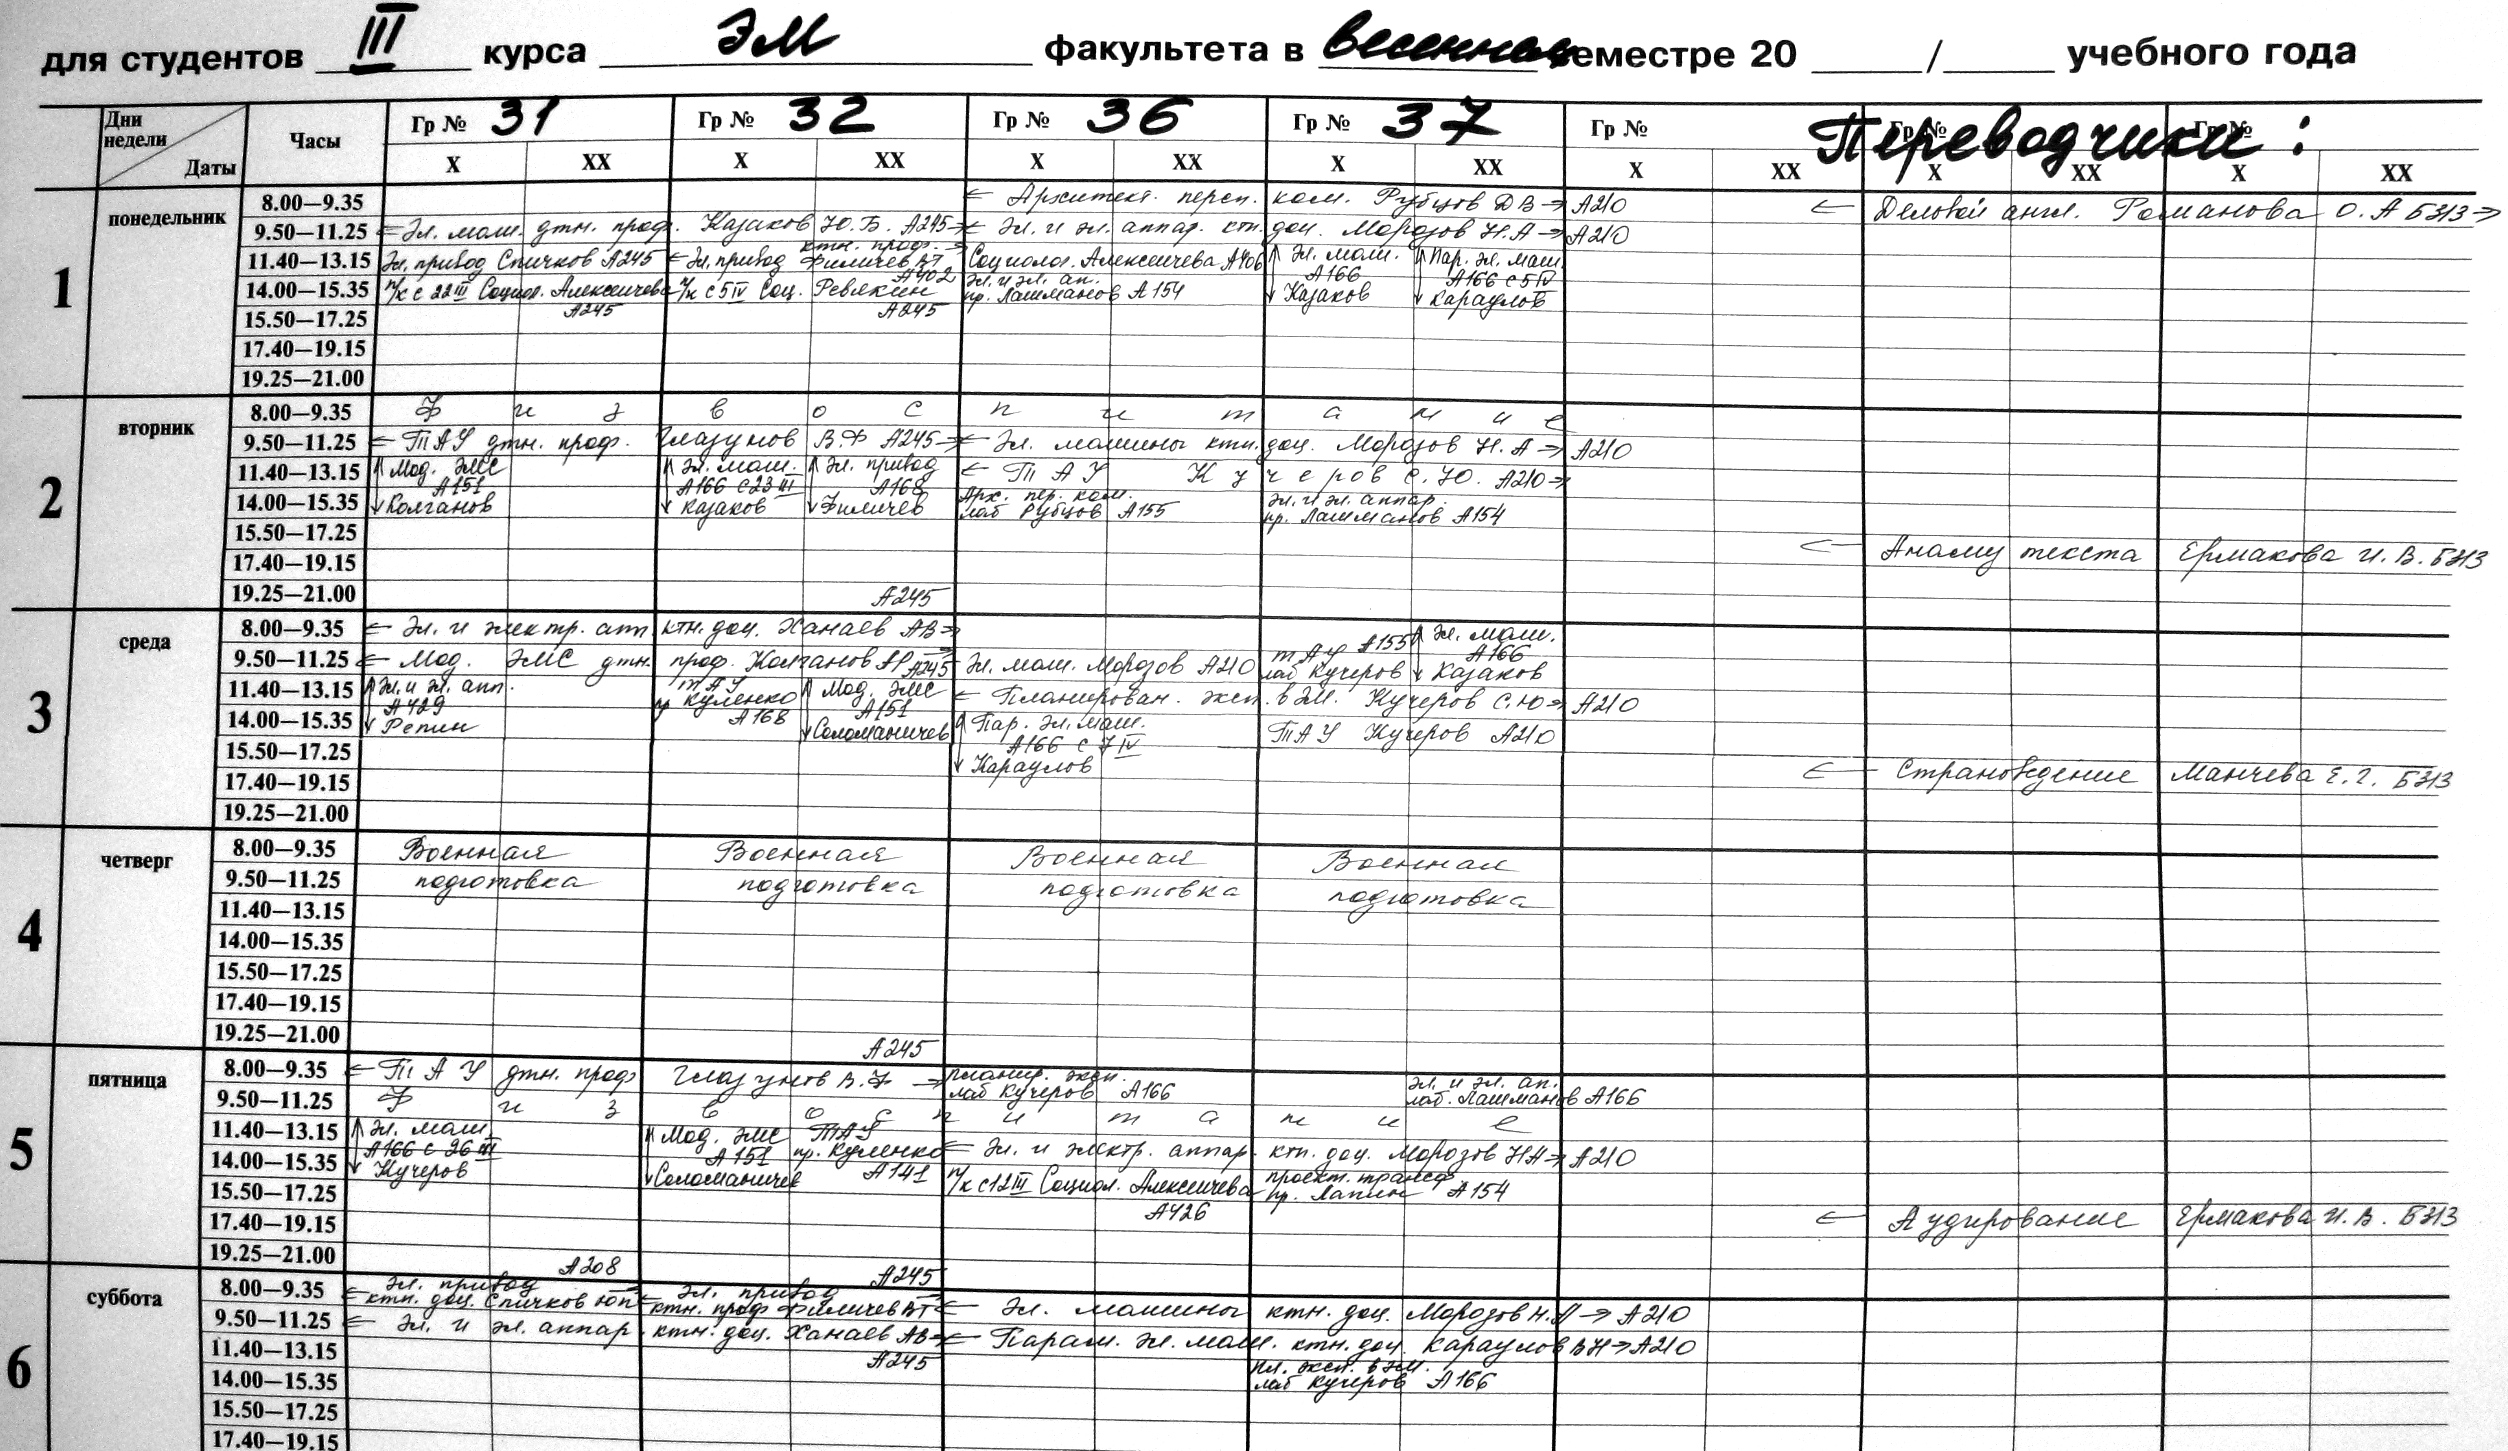 для студентов III курса ЭМ факультета в весеннем семестре 20 ____/____ учебного года
Дни недели Даты Часы Гр № 31 Гр № 32 Гр № 36 Гр № 37 Гр № Гр № Гр №
Переводчики:
X XX X XX X XX X XX X XX X XX X XX
1 понедельник
8.00—9.35 ← Архитект. персп. ком. Рубцов ДВ → А210 ← Деловой англ. Романова О.А Б313 →
9.50—11.25 ← Эл. маш. дтн. проф. Казаков Ю.Б. А245 → ← Эл. и эл. аппар. ктн. доц. Морозов Н.А → А210
11.40—13.15 Эл. привод Спичков А245 ← Эл. привод ктн. проф. Филичев ВТ → А402 Социолог. Алексеичева А406 ↑ Эл. маш. А166 ↑ Пар. эл. маш. А166 с 5 IV
14.00—15.35 п/к с 22 III Социол. Алексеичева А245 п/к с 5 IV Соц. Ревякин А245 Эл. и эл. ап. пр. Лашманов А154 ↓ Казаков ↓ Караулов
15.50—17.25
17.40—19.15
19.25—21.00
2 вторник
8.00—9.35 Ф и з в о с п и т а н и е
9.50—11.25 ← ТАУ дтн. проф. Глазунов В.Ф А245 → ← Эл. машины ктн. доц. Морозов Н.А → А210
11.40—13.15 ↑ Мод. ЭМС А151 ↑ Эл. маш. А166 с 23 III ↑ Эл. привод А168 ← Т А У Кучеров С.Ю. А210 →
14.00—15.35 ↓ Колганов ↓ Казаков ↓ Филичев Арх. пер. ком. лаб Рубцов А155 Эл. и эл. аппар. пр. Лашманов А154
15.50—17.25
17.40—19.15 ← Анализ текста Ермакова И.В. Б313
19.25—21.00
3 среда
А245
8.00—9.35 ← Эл. и электр. апп. ктн. доц. Ханаев АВ → ↑ Эл. маш. А166
9.50—11.25 ← Мод. ЭМС дтн. проф. Колганов АР → А245 Эл. маш. Морозов А210 ТАУ А155 лаб Кучеров ↓ Казаков
11.40—13.15 ↑ Эл. и эл. апп. А429 ТАУ пр Куленко А168 ↑ Мод. ЭМС А151 ← Планирован. эксп. в ЭМ. Кучеров С.Ю → А210
14.00—15.35 ↓ Репин ↓ Соломаничев ↑ Пар. эл. маш. А166 с 7 IV ТАУ Кучеров А210
15.50—17.25 ↓ Караулов
17.40—19.15 ← Страноведение Манчева Е.Г. Б313
19.25—21.00
4 четверг
8.00—9.35 Военная Военная Военная Военная
9.50—11.25 подготовка подготовка подготовка подготовка
11.40—13.15
14.00—15.35
15.50—17.25
17.40—19.15
19.25—21.00
5 пятница
А245
8.00—9.35 ← Т А У дтн. проф Глазунов В.Ф → планир. эксп. лаб Кучеров А166 Эл. и эл. ап. лаб. Лашманов А166
9.50—11.25 Ф и з в о с п и т а н и е
11.40—13.15 ↑ Эл. маш А166 с 26 III ↑ Мод. ЭМС А151 ТАУ пр. Куленко А141 ← Эл. и электр. аппар. ктн. доц. Морозов НА → А210
14.00—15.35 ↓ Кучеров ↓ Соломаничев п/к с 12 III Социол. Алексеичева А426 проект. трансф. пр. Лапин А154
15.50—17.25
17.40—19.15 ← Аудирование Ермакова И.В. Б313
19.25—21.00
6 суббота
А208 А245
8.00—9.35 ← Эл. привод ктн. доц. Спичков ЮП → ← Эл. привод ктн. проф Филичев ВТ → ← Эл. машины ктн. доц. Морозов Н.А → А210
9.50—11.25 ← Эл. и эл. аппар. ктн. доц. Ханаев АВ → А245 ← Парам. эл. маш. ктн. доц. Караулов ВН → А210
11.40—13.15 Пл. эксп. в ЭМ. лаб Кучеров А166
14.00—15.35
15.50—17.25
17.40—19.15